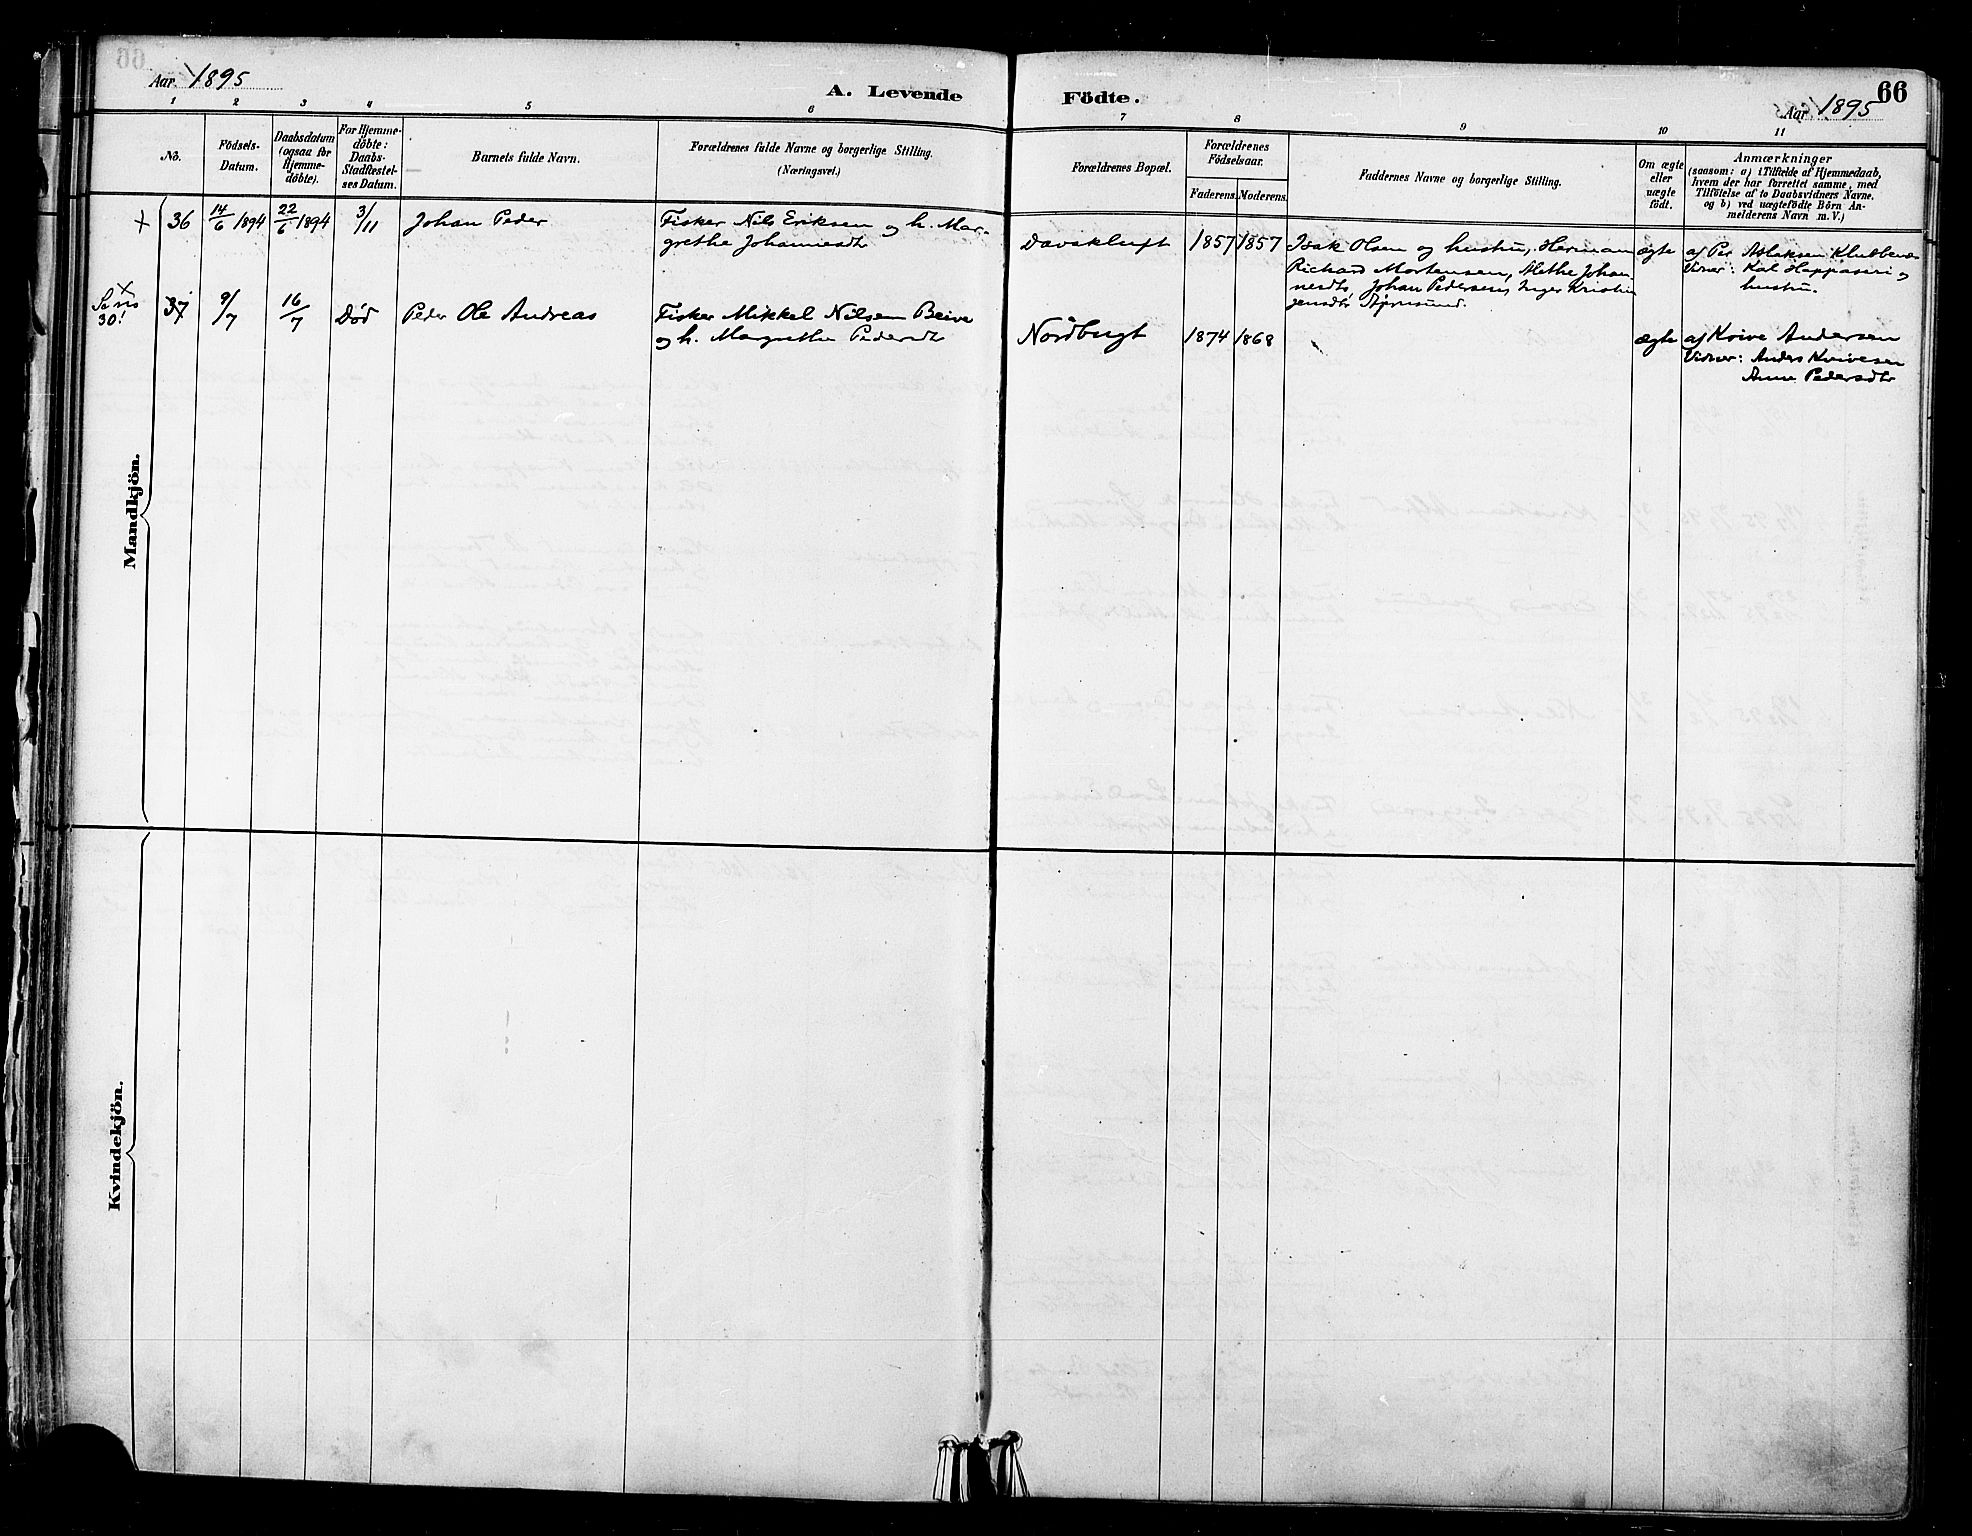 66
Aar 1895
A. Levende Födte.
Aar 1895
1 2 3 4 5 6 7 8 9 10 11
No.
Födsels-
Datum.
Daabsdatum
(ogsaa for
Hjemme-
döbte).
For Hjemme-
döbte:
Daabs-
Stadfæstel-
ses Datum.
Barnets fulde Navn.
Forældrenes fulde Navne og borgerlige Stilling.
(Næringsvei.)
Forældrenes Bopæl.
Forældrenes
Födselsaar.
Faderens. Moderens.
Faddernes Navne og borgerlige Stilling.
Om ægte
eller
uægte
födt.
Anmærkninger
(saasom: a) i Tilfælde af Hjemmedaab,
hvem der har forrettet samme, med
Tilföielse af to Daabsvidners Navne.
og b) ved uægtefödte Börn An-
melderens Navn m. V.)
Mandkjön.
+ 36 14/6 1894 22/6 1894 3/11 Johan Peder
Fisker Nils Eriksen og h. Mar-
grethe Johannesdtr
Davskluft 1857 1857
Isak Olsen og hustru, Herman
Richard Mortensen, Alethe Johan
nesdtr, Johan Pedersen, Inger Kristin
Jensdtr
ægte
af Per Aslaksen Klubbenæs
Vidner: Kal Happaseri og
hustru.
Se no
30!
37 9/7 16/7 Död Peder Ole Andreas
Fisker Mikkel Nilsen Beive
og h. Margrethe Pedersdtr
Nordbugt 1874 1868
ægte
af Kvive Andersen
Vidner: Anders Kvivesen
Anne Pedersdtr
Kvindekjön.